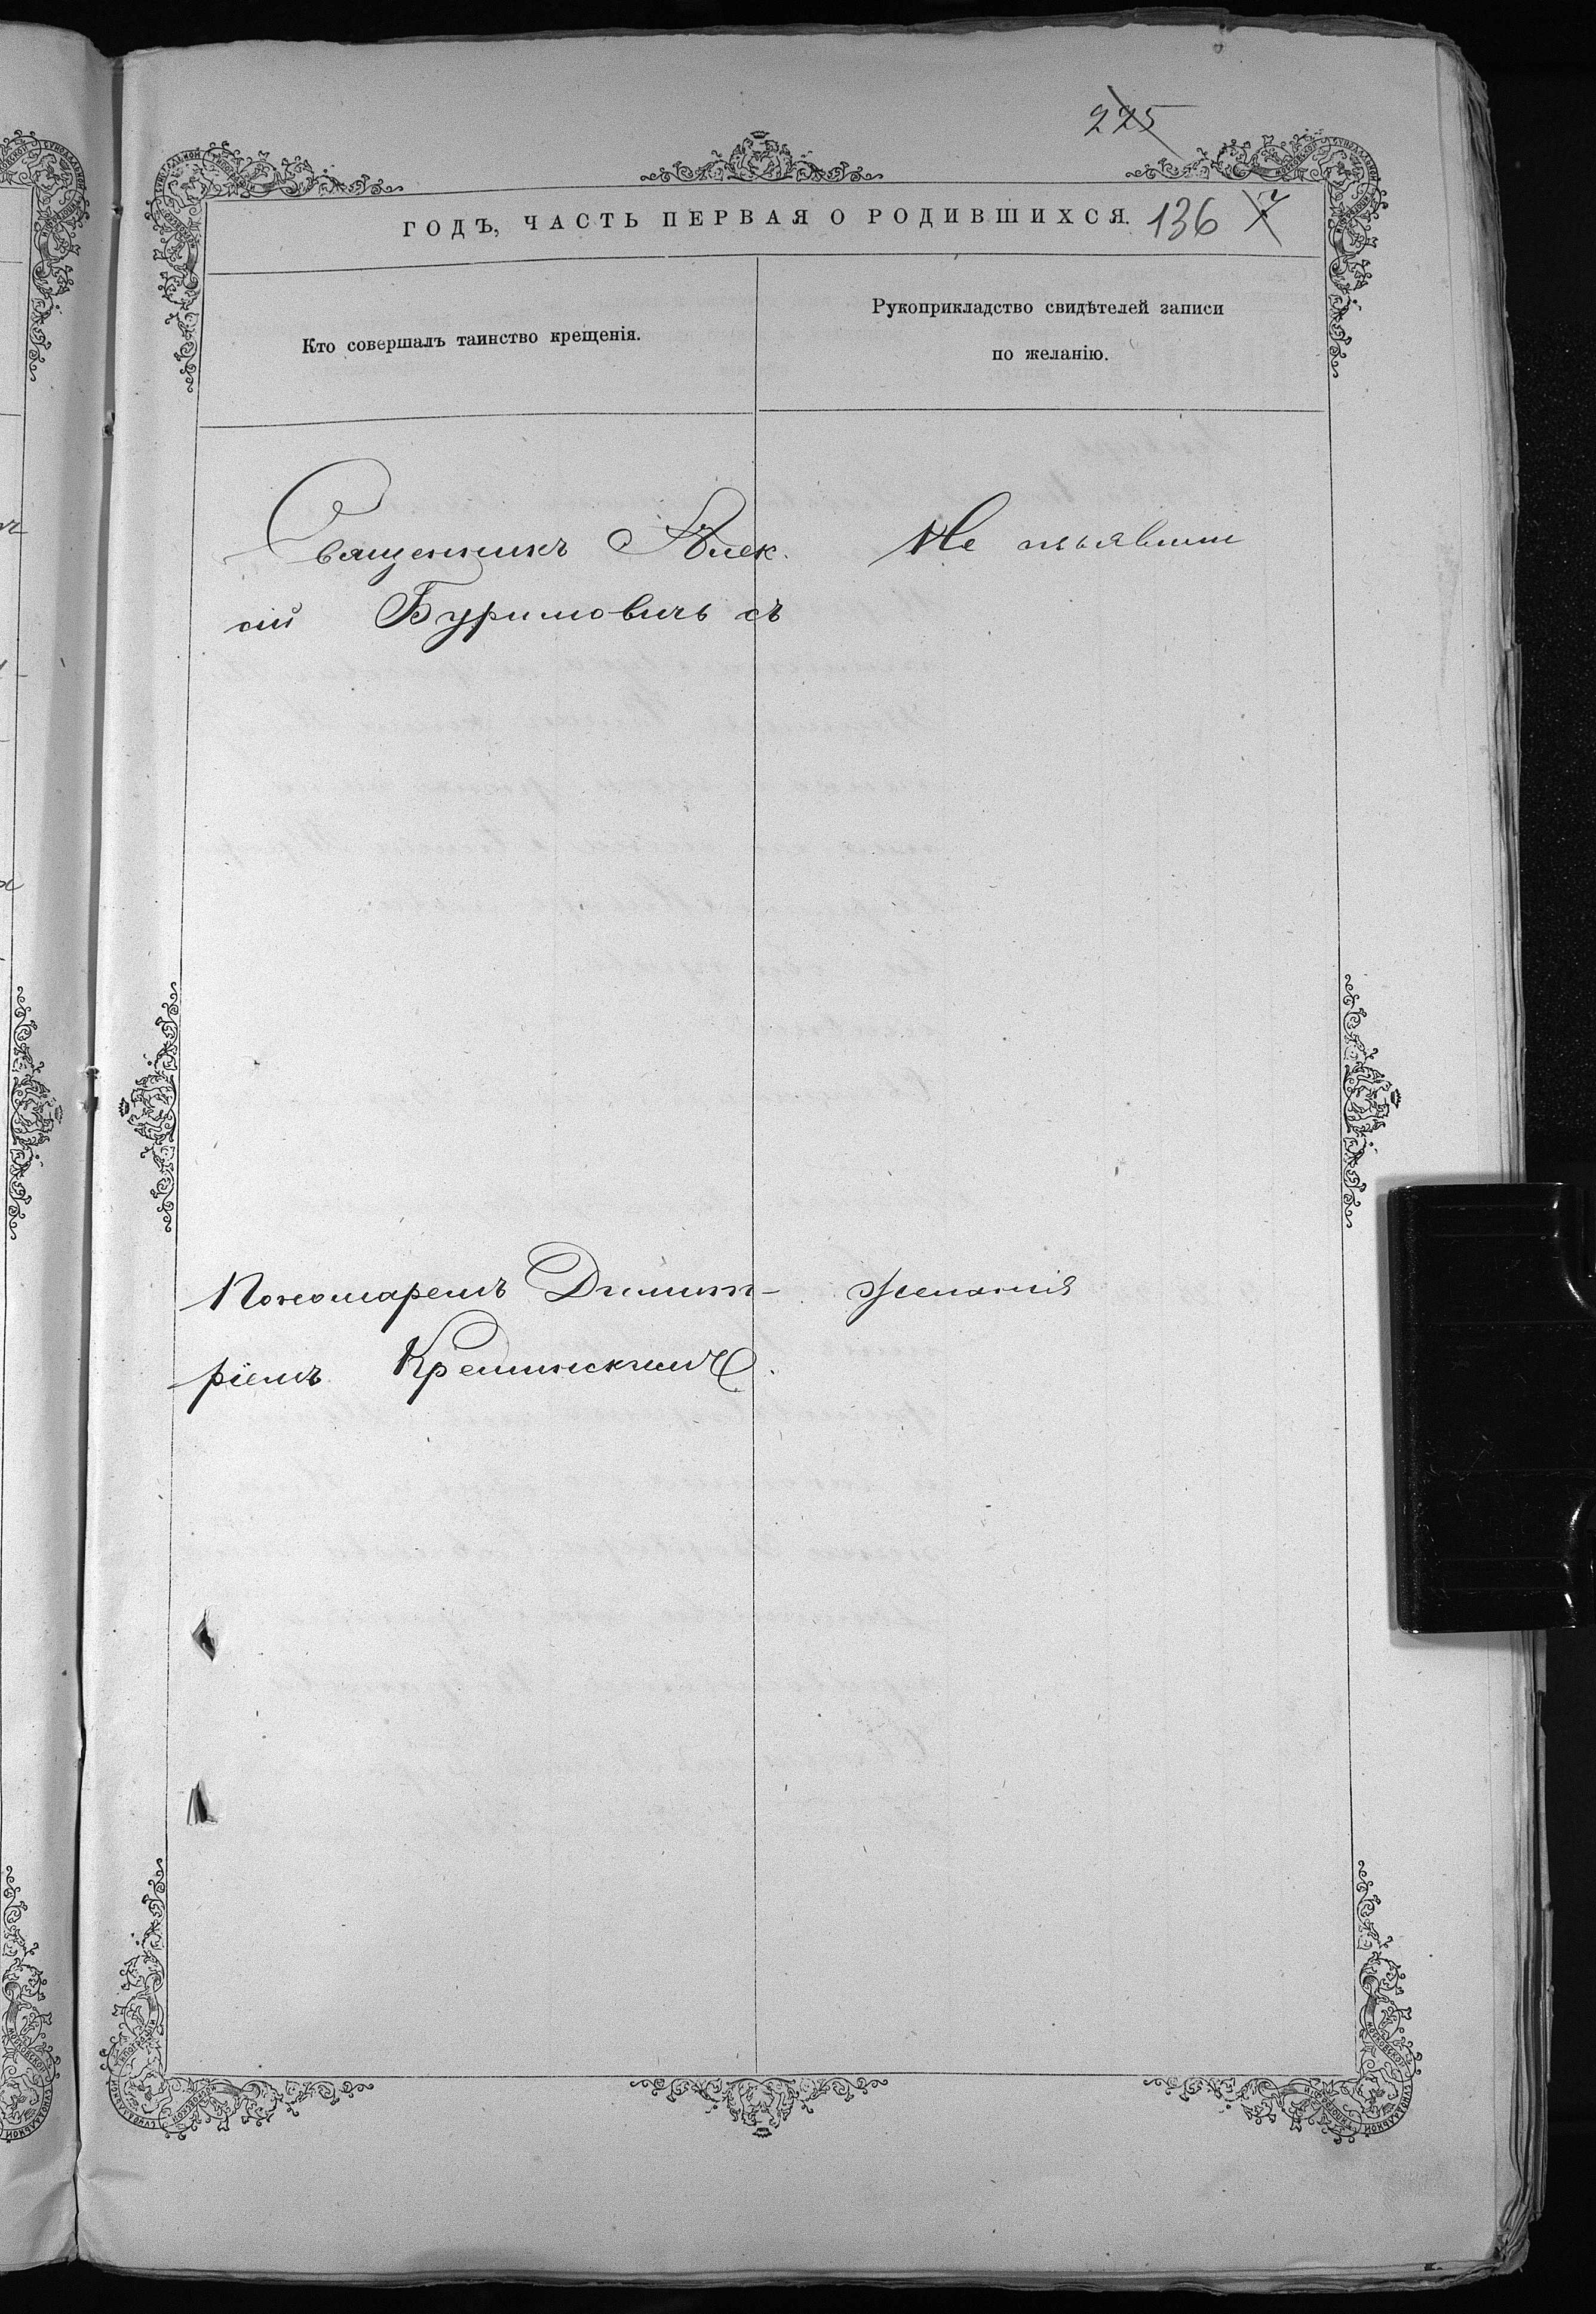 225
ГОДЪ, ЧАСТЬ ПЕРВАЯ О РОДИВШИХСЯ. 136
Кто совершалъ таинство крещенія.
Рукоприкладство свидѣтелей записи
по желанію.
Священникъ Алек
сій Буримовичъ съ
Не изъявили
Пономаремъ Димит-
ріемъ Креминскимъ.
желанія